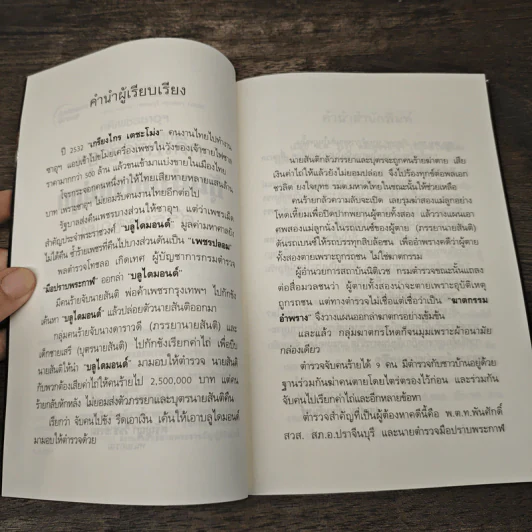 คำนำผู้เรียบเรียง
ปี 2532 "เกรียงไกร เตชะโม่ง" คนงานไทยไปทำงาน
ซาอุฯ แอบเข้าไปขโมยเครื่องเพชรในวังของเจ้าชายไฟซาล
ราคามากกว่า 500 ล้าน แล้วขนเข้ามาแบ่งขายในเมืองไทย
โจรกระจอกคนหนึ่งทำให้ไทยเสียหายหลายแสนล้าน
บาท เพราะซาอุฯ ไม่ยอมรับคนงานไทยอีกต่อไป
รัฐบาลส่งคืนเพชรบางส่วนให้ซาอุฯ แต่ว่าเพชรเม็ด
สำคัญประจำพระราชวงศ์ "บลูไดมอนด์" มูลค่ามหาศาลยัง
ไม่ได้คืน ซ้ำร้ายเพชรที่คืนไปบางส่วนดันเป็น "เพชรปลอม"
พลตำรวจโทชลอ เกิดเทศ ผู้บัญชาการกรมตำรวจ
"มือปราบพระกาฬ" ออกล่า "บลูไดมอนด์"
มีคนร้ายจับนายสันติ พ่อค้าเพชรกรุงเทพฯ ไปกักขัง
เค้นหา "บลูไดมอนด์" แล้วปล่อยตัวนายสันติออกมา
กลุ่มคนร้ายจับนางดาราวดี (ภรรยานายสันติ) และ
เด็กชายเสรี (บุตรนายสันติ) ไปกักขังเรียกค่าไถ่ เพื่อบีบ
นายสันติให้นำ "บลูไดมอนด์" มามอบให้ตำรวจ นายสันติ
กับพวกต้องเสียค่าไถ่ให้คนร้ายไป 2,500,000 บาท แต่คน
ร้ายกลับหักหลัง ไม่ยอมส่งตัวภรรยาและบุตรนายสันติคืน
เรียกว่า จับคนไปขัง รีดเอาเงิน เค้นให้เอาบลูไดมอนด์
มามอบให้ตำรวจด้วย
นายสันติกลัวภรรยาและบุตรจะถูกคนร้ายฆ่าตาย เสีย
เงินค่าไถ่ให้แล้วยังไม่ยอมปล่อย จึงไปร้องทุกข์ต่อพลเอก
ชวลิต ยงใจยุทธ รมต.มหาดไทยในขณะนั้นให้ช่วยเหลือ
คนร้ายกลัวความลับจะเปิด เลยรุมฆ่าสองแม่ลูกอย่าง
โหดเหี้ยมเพื่อปิดปากพยานผู้ตายทั้งสอง แล้ววางแผนเอา
ศพสองแม่ลูกนั่งในรถเบนซ์ของผู้ตาย (ภรรยานายสันติ)
ดันรถเบนซ์ให้รถบรรทุกสิบล้อชน เพื่ออำพรางคดีว่าผู้ตาย
ทั้งสองตายเพราะถูกรถชน ไม่ใช่ฆาตกรรม
ผู้อำนวยการสถาบันนิติเวช กรมตำรวจขณะนั้นแถลง
ต่อสื่อมวลชนว่า ผู้ตายทั้งสองน่าจะตายเพราะอุบัติเหตุ
ถูกรถชน แต่ทางตำรวจไม่เชื่อแต่เชื่อว่าเป็น "ฆาตกรรม
อำพราง" จึงวางแผนออกล่าฆาตกรอย่างเข้มข้น
และแล้ว กลุ่มฆาตกรโหดก็จนมุมเพราะผ้าอนามัย
กล่องเดียว
ตำรวจจับคนร้ายได้ 9 คน มีตำรวจกับชาวบ้านอยู่ด้วย
ฐานร่วมกันฆ่าคนตายโดยไตร่ตรองไว้ก่อน และร่วมกัน
จับคนไปเรียกค่าไถ่และอีกหลายข้อหา
ตำรวจสำคัญที่เป็นผู้ต้องหาคดีนี้คือ พ.ต.ท.พันศักดิ์
สวส. สภ.อ.ปราจีนบุรี และนายตำรวจมือปราบพระกาฬ